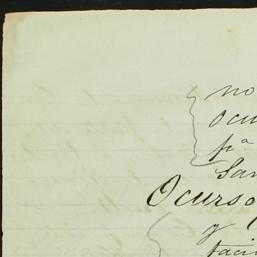 no
ocu
pa
San
Ocurso
y
faci